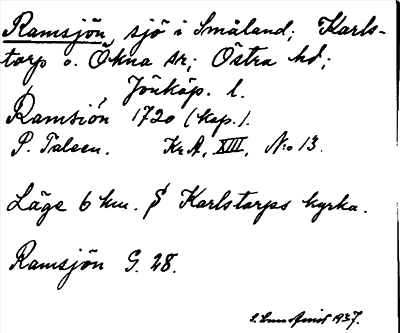 Ramsjön, sjö i Småland; Karls-
torp o. Ökna sr; Östra hd;
Jönköp. l.
Ramsiön 1720 (kop.).
P. Talsen. KrA, XIII, N:o 13.
Läge 6 km. S Karlstorps kyrka.
Ramsjön G. 28.
1937.